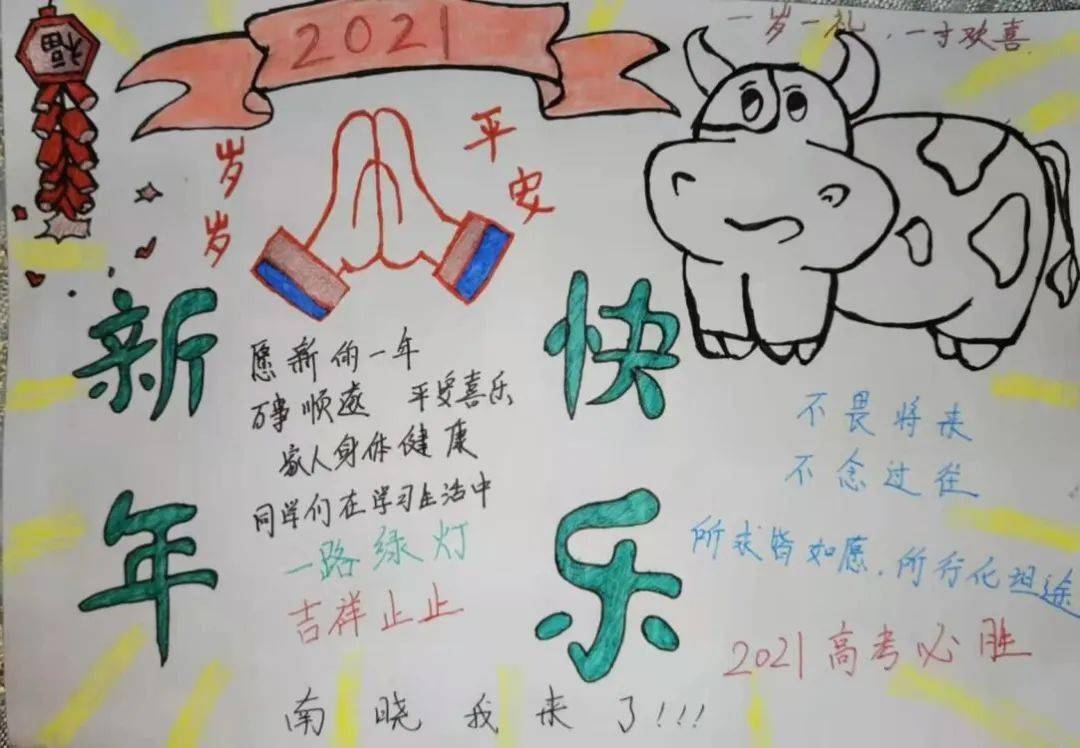 2021
一岁一礼，一寸欢喜
福
岁岁
平安
新年
快乐
愿新的一年
万事顺遂 平安喜乐
家人身体健康
同学们在学习生活中
一路绿灯
吉祥止止
不畏将来
不念过往
所求皆如愿，所行化坦途
2021高考必胜
南晓我来了!!!